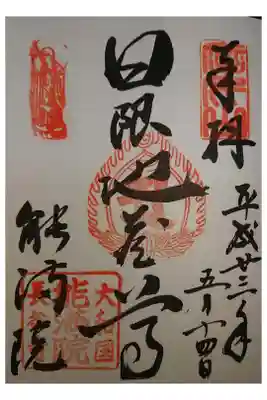 奉拝
平成廿三年
五月十四日
日限地蔵尊
能満院
大和国
能満院